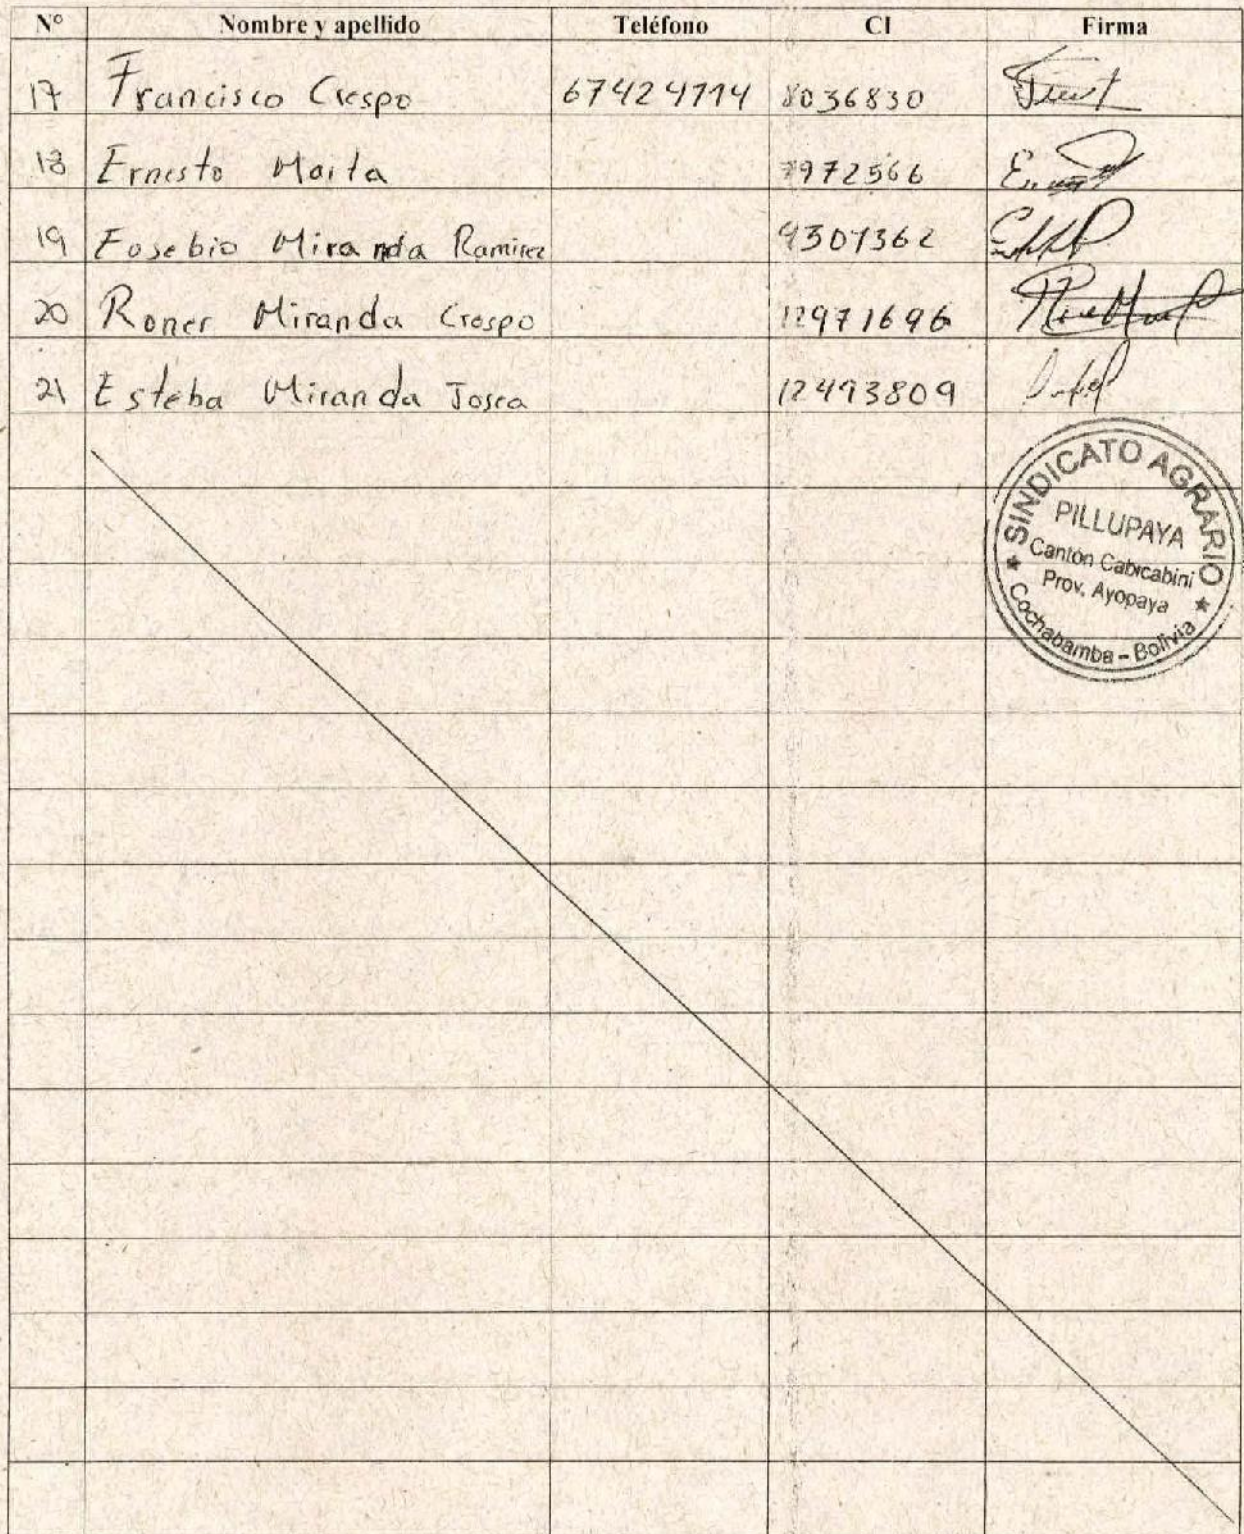 N° Nombre y apellido Teléfono CI Firma
17 Francisco Crespo 67424714 8036830
18 Ernesto Maita 7972566
19 Eusebio Miranda Ramirez 9307362
20 Roner Miranda Crespo 12971696
21 Esteba Miranda Josea 12493809
SINDICATO AGRARIO
PILLUPAYA
Cantón Cabicabini
Prov. Ayopaya
Cochabamba - Bolivia